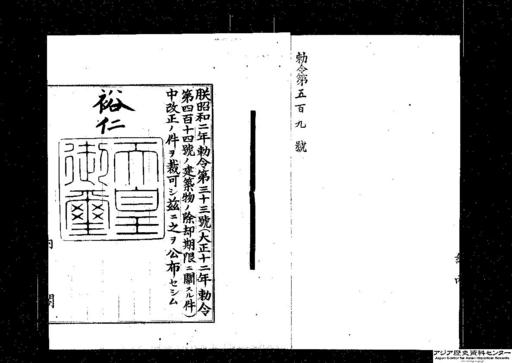 勅令第五百九號
朕昭和二年勅令第三十三號(大正十二年勅令
第四百十四號ノ建築物ノ除却期限ニ關スル件)
中改正ノ件ヲ裁可シ茲ニ之ヲ公布セシム
裕仁
天皇
御璽
内閣
アジア歴史資料センター
Japan Center for Asian Historical Records